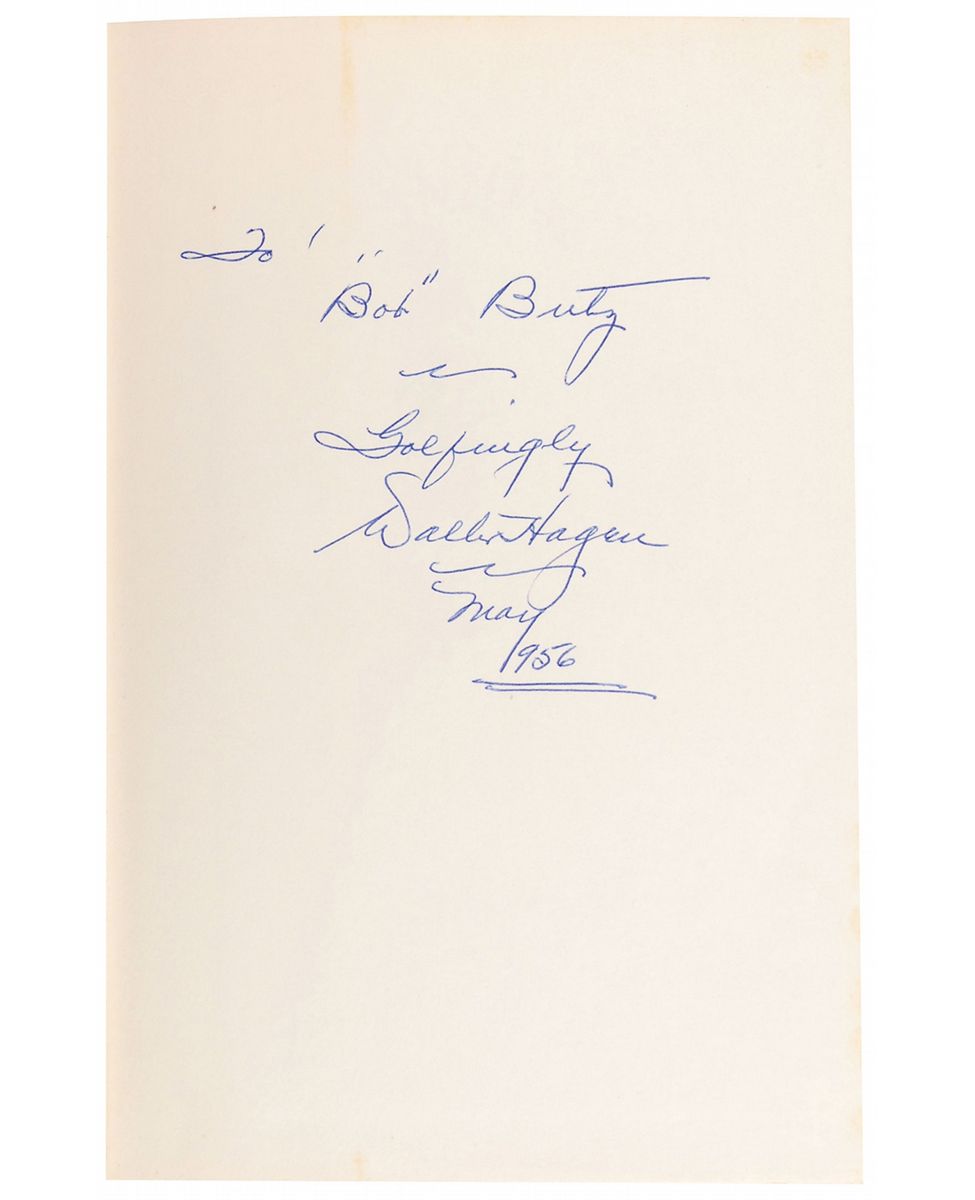 To
"Bob" Butz
Golfingly
Walter Hagen
May
1956